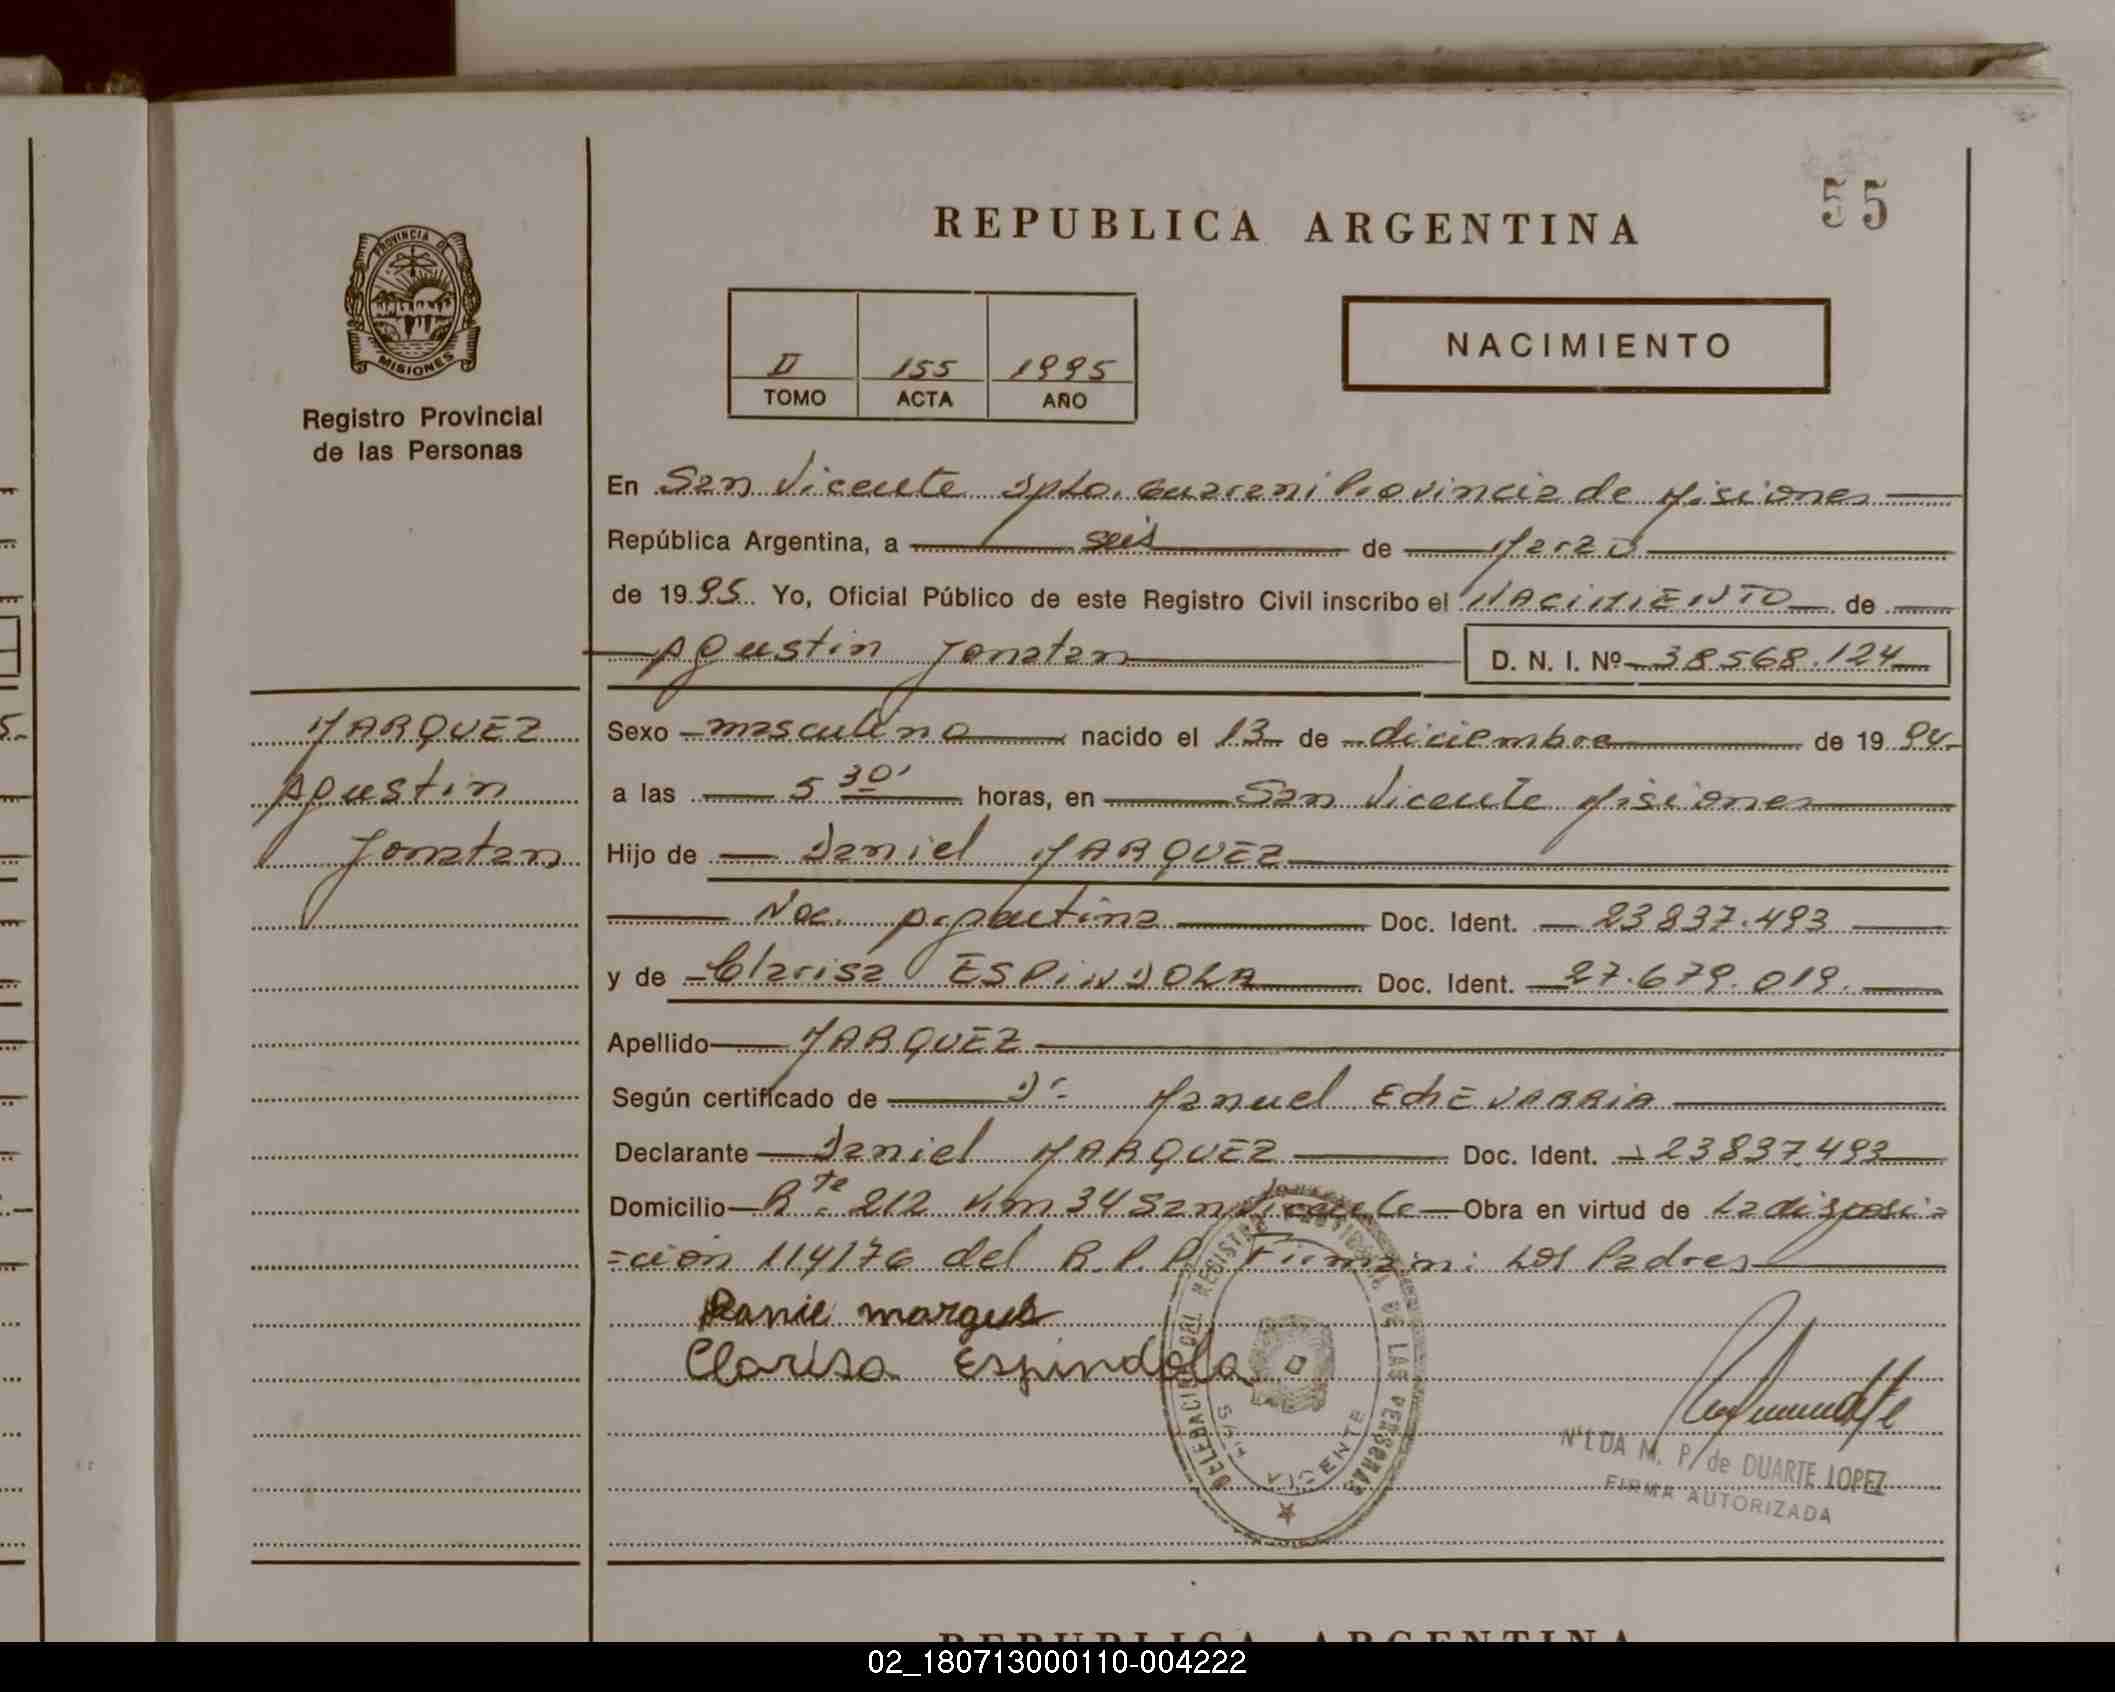 55
REPUBLICA ARGENTINA
PROVINCIA DE
MISIONES
Registro Provincial
de las Personas
II 155 1995
TOMO ACTA AÑO
NACIMIENTO
En San Vicente Dpto. Guarani Provincia de Misiones
República Argentina, a seis de Marzo
de 1995 Yo, Oficial Público de este Registro Civil inscribo el NACIMIENTO de
Agustin Jonatan D. N. I. Nº 38568.124
MARQUEZ
Agustin
Jonatan
Sexo masculino nacido el 13 de diciembre de 1994
a las 5 30' horas, en San Vicente Misiones
Hijo de Daniel MARQUEZ
Nac. Argentina Doc. Ident. 23837.493
y de Clarisa ESPINDOLA Doc. Ident. 27.679.019.
Apellido MARQUEZ
Según certificado de Dr. Manuel EchEVARRIA
Declarante Daniel MARQUEZ Doc. Ident. 23837.493
Domicilio Rta. 212 Km 34 San Vicente Obra en virtud de la disposi=
=ción 114/76 del R.P.P. Firman: Los Padres
marques
Clarisa Espindola
DELEGACION DEL REGISTRO PROVINCIAL DE LAS PERSONAS
SAN VICENTE
NILDA M. P. de DUARTE LOPEZ
FIRMA AUTORIZADA
REPUBLICA ARGENTINA
02_180713000110-004222